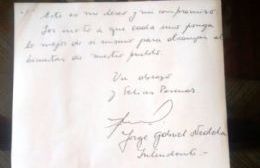 Este es mi deseo y mi compromiso
Los invito a que cada uno ponga
lo mejor de si mismo para alcanzar el
bienestar de nuestro pueblo.
Un abrazo
y Felices Pascuas
Jorge Gabriel
Intendente -